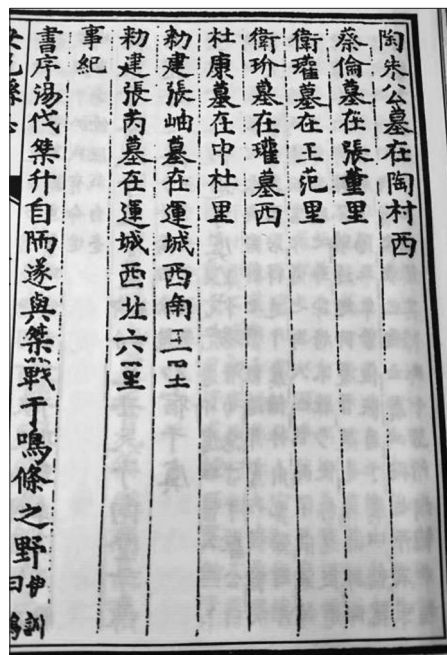 陶朱公墓在陶村西
蔡倫墓在張董里
衛瓘墓在王范里
衛玠墓在瓘墓西
杜康墓在中杜里
勑建張岫墓在運城西南三里
勑建張芮墓在運城西北六里
事紀
書序湯伐桀升自陑遂與桀戰于鳴條之野伊訓曰鳴